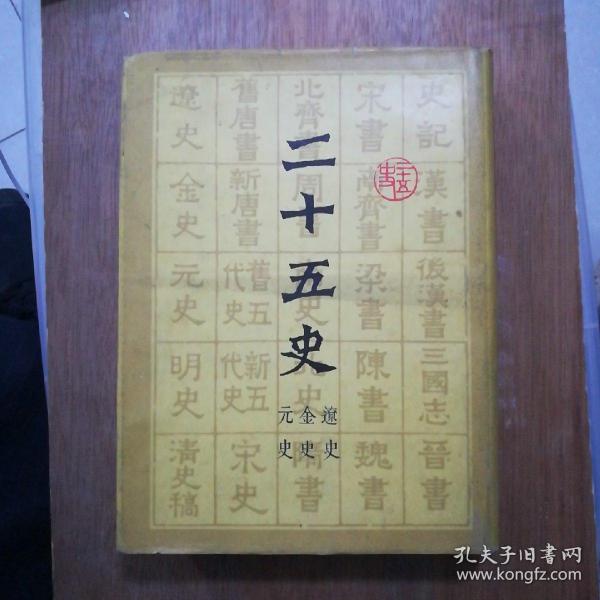 二十五史
遼史
金史
元史
史記
漢書
後漢書
三國志
晉書
宋書
南齊書
梁書
陳書
魏書
北齊書
周書
史
史
隋書
舊唐書
新唐書
舊五代史
新五代史
宋史
遼史
金史
元史
明史
清史稿
孔夫子旧书网
www.kongfz.com